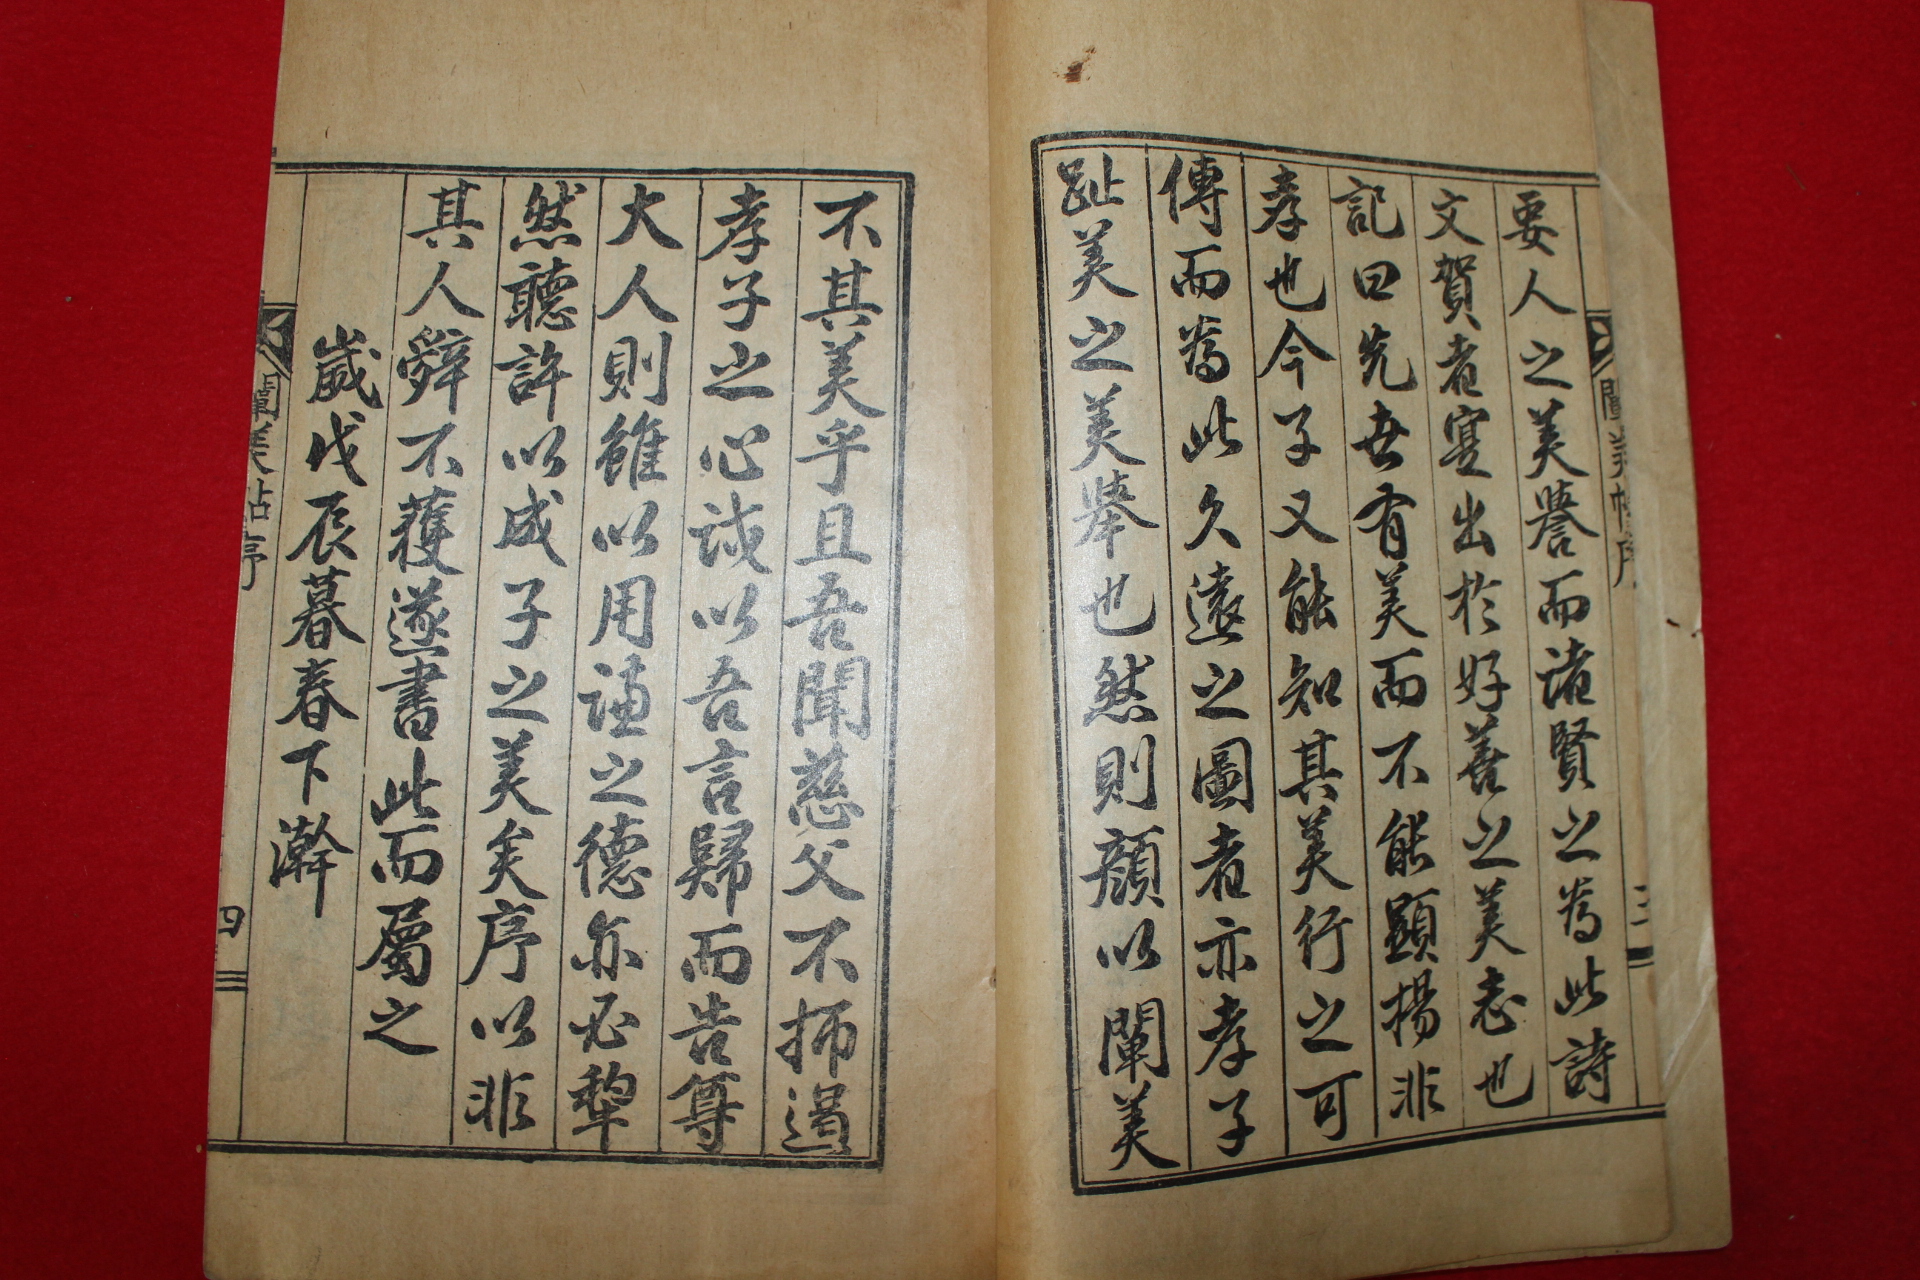 要人之美譽而諸賢之爲此詩
文賀者寔出於好善之美志也
記曰先世有美而不能顯揚非
孝也今子又能知其美行之可
傳而爲此久遠之圖者亦孝子
趾美之美擧也然則顔以闡美
不其美乎且吾聞慈父不拂遏
孝子之心誠以吾言歸而告尊
大人則雖以用謙之德亦必犂
然聽許以成子之美矣序以非
其人辭不獲遂書此而屬之
歲戊辰暮春下澣
闡美帖序
四